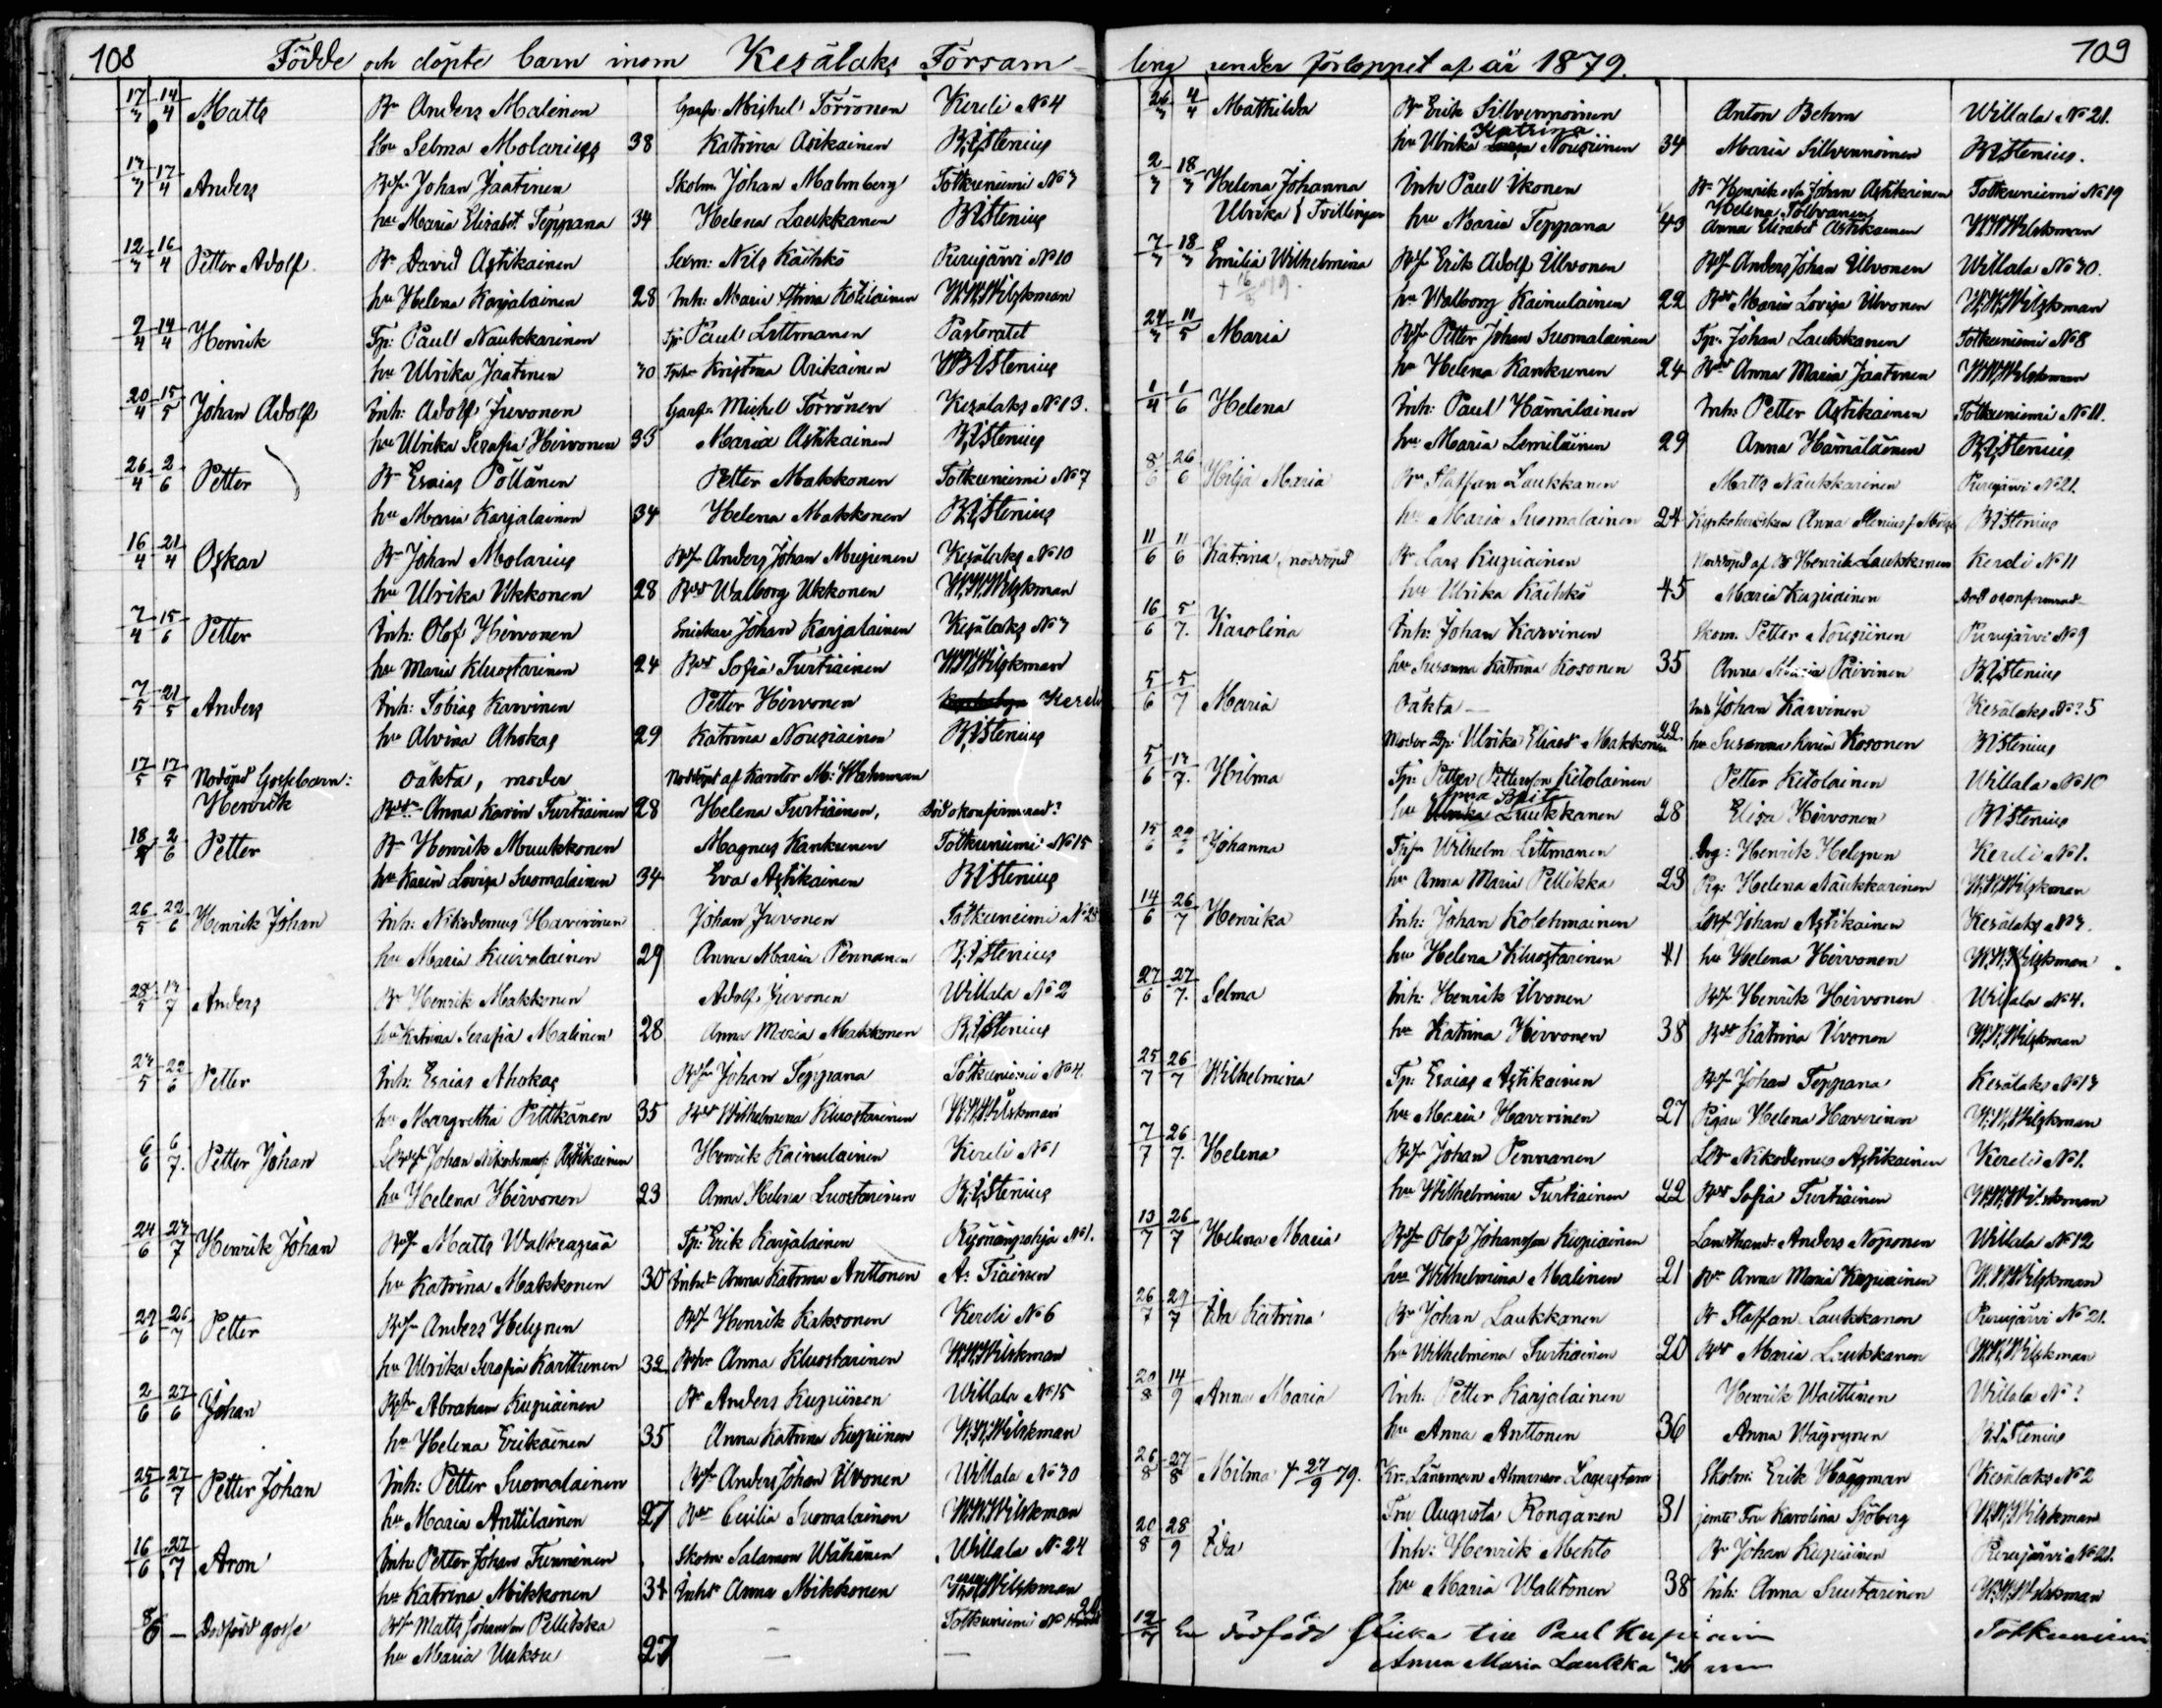 108
Födde och döpte barn inom Kesälaks Försam
17/3 14/4 Matts Bn Anders Malinen Michel Törrönen Kerdi No 4
Hu Selma Molarius 38 Katrina Asikainen B.I.Stenius
13/3 17/4 Anders Johan Jaatinen Skolm. Johan Malmberg Totkuniemi No 3
hu Maria Elisabt Teppana 34 Helena Laukkanen B.I.Stenius
12/3 16/4 Petter Adolf Bn David Astikainen Sexm: Nils Käihkö Purujärvi No 10
hu Helena Karjalainen 28 Inh: Maria Stina Kotilainen W.W.Wilskman
2/4 14/4 Henrik Tp: Paul Naukkarinen Tp: Paul Littmanen Pastoratet
hu Ulrika Jaatinen 30 Kristina Asikainen B.I.Stenius
20/4 15/5 Johan Adolf Inh: Adolf Juvonen Michel Törrönen Kesälaks No 13.
hu Ulrika Serafia Hirvonen 33 Maria Astikainen B.I.Stenius
26/4 2/6 Petter Bn Esaias Pöllänen Petter Makkonen Totkuniemi No 7
hu Maria Karjalainen 34 Helena Makkonen B.I.Stenius
16/4 21/4 Oskar Bn Johan Molarius Anders Johan Mujunen Kesälaks No 10
hu Ulrika Ukkonen 28 Walborg Ukkonen W.W.Wilskman
7/4 15/6 Petter Inh: Olof Hirvonen Snickar Johan Karjalainen Kesälaks No 3
hu Maria Kluostarinen 24 Sofia Turtiainen W.W.Wilskman
7/5 21/5 Anders Inh: Tobias Karvinen Petter Hirvonen Kerdi
hu Alvina Ahokas 29 Katrina Nousiainen B.I.Stenius
17/5 17/5 Nödöpt Gossebarn: oäkta, moder Nöddöpt af Kantor M: Wahrman
Henrik Anna Karin Turtiainen 28 Helena Turtiainen, Död okonfirmerad?
18/5 2/6 Petter Bn Henrik Muukkonen Magnus Kankunen Totkuniemi No 15
hu Karin Lovisa Suomalainen 34 Eva Astikainen B.I.Stenius
26/5 22/6 Henrik Johan Inh: Nikodemus Havirinen Johan Juvonen Totkuniemi No 23
hu Maria Kuivalainen 29 Anna Maria Pennanen B.I.Stenius
28/5 13/7 Anders Bn Henrik Makkonen Adolf Juvonen Willala No 2
hu Katrina Serafia Malinen 28 Anna Maria Makkonen B.I.Stenius
23/5 22/6 Petter Inh: Esaias Ahokas Johan Teppana Totkuniemi No 4.
hu Margretha Pitkänen 35 Wilhelmina Kluostarinen W.W.Wilskman
6/6 6/7. Petter Johan Johan Nikodemus Astikainen Henrik Kainulainen Kerdi No 1
hu Helena Hirvonen 23 Anna Helena Luostarinen B.I.Stenius
24/6 27/7 Henrik Johan Matts Walkeapää Tp: Erik Karjalainen No 1.
hu Katrina Makkonen 30 Anna Katrina Anttonen A. Tiainen
29/6 26/7 Petter Anders Helynen Henrik Kaksonen Kerdi No 6
hu Ulrika Serafia Karttunen 32 Anna Kluostarinen W.W.Wilskman
2/6 27/6 Johan Abraham Kupiainen Bn Anders Kupiinen Willala No 15
hu Helena Erikäinen 35 Anna Katrina Kupiinen W.W.Wilskman
25/6 27/7 Petter Johan Inh: Petter Suomalainen Anders Johan Ilvonen Willala No 30
hu Maria Anttilainen 27 Cecilia Suomalainen W.W.Wilskman
16/6 27/7 Aron Inh: Petter Johan Tunninen Skolm Salamon Wähänen Willala No 24
hu Katrina Mikkonen 34 Anna Mikkonen Wilskman
8/6 — Dödfödd gosse Matts Johansson Pellikka — Totkuniemi No
hu Maria Uuksu 27 — —
109
ling under förloppet af år 1879.
26/3 4/4 Mathilda Bn Erik Sillvennoinen Anton Behm Willala No 21.
hu Ulrika Katrina Nousiinen 34 Maria Sillvennoinen B.I.Stenius.
2/3 18/3 Helena Johanna Inh Paul Ikonen Bn Henrik och Johan Astikainen Totkuniemi No 19
Ulrika } Tvillingar hu Maria Teppana 43 Helena Tolvanen Anna Elisabet Astikainen W.W.Wilskman
7/3 18/3 Emilia Wilhelmina Erik Adolf Ilvonen Anders Johan Ilvonen Willala No 30.
hu Walborg Kainulainen 22 Maria Lovisa Ilvonen W.W.Wilskman
24/3 11/5 Maria Petter Johan Suomalainen Tp: Johan Laukkanen Totkuniemi No 8
hu Helena Kankunen 24 Anna Maria Jaatinen W.W.Wilskman
1/4 1/6 Helena Inh: Paul Hämäläinen Inh: Petter Astikainen Totkuniemi No 11.
hu Maria Lemiläinen 29 Anna Hämäläinen B.I.Stenius
8/6 26/6 Hilja Maria Bn Staffan Laukkanen Matts Naukkarinen Purujärvi No 21.
hu Maria Suomalainen 24 Anna Stenius B.I.Stenius
11/6 11/6 Katrina, nöddöpt Bn Lars Kupiainen Nöddöpt af Bn Henrik Laukkanen Kerdi No 11
hu Ulrika Käihkö 45 Maria Kupiainen Död okonfirmerad
16/6 5/7. Karolina Inh: Johan Karvinen Skom. Petter Nousiinen Purujärvi No 9
hu Susanna Katrina Kosonen 35 Anna Maria Päivinen B.I.Stenius
5/6 5/7 Maria Oäkta — Inh Johan Karvinen Kesälaks No? 5
Moder Tp: Ulrika Elisabet Makkonen 22 hu Susanna Karin Kosonen B.I.Stenius
5/6 13/7. Hilma Tp: Petter Pettersson Kekolainen Petter Kekolainen Willala No 10
hu Anna Brita Luukkanen 28 Elisa Hirvonen B.I.Stenius
15/6 29/6 Johanna Wilhelm Littmanen Drg: Henrik Helynen Kerdi No 1.
hu Anna Maria Pellikka 23 Pig: Helena Naukkarinen W.W.Wilskman
14/6 26/7 Henrika Inh: Johan Kolehmainen Johan Astikainen Kesälaks No 3.
hu Helena Kluostarinen 41 hu Helena Hirvonen W.W.Wilskman
27/6 27/7. Selma Inh: Henrik Ilvonen Henrik Hirvonen Willala No 4.
hu Katrina Hirvonen 38 Katrina Ilvonen W.W.Wilskman
25/7 26/7 Wilhelmina Tp: Esaias Astikainen Johan Teppana Kesälaks No 13
hu Maria Havirinen 27 Pigan Helena Havirinen W.W.Wilskman
7/7 26/7. Helena Johan Pennanen Nikodemus Astikainen Kerdi No 1.
hu Wilhelmina Turtiainen 22 Sofia Turtiainen W.W.Wilskman
13/7 26/7 Helena Maria Olof Johansson Kupiainen Landthand: Anders Noponen Willala No 12
hu Wilhelmina Malinen 21 Anna Maria Kupiainen W.W.Wilskman
26/7 29/7 Ida Katrina Bn Johan Laukkanen Bn Staffan Laukkanen Purujärvi No 21.
hu Wilhelmina Turtiainen 20 Maria Laukkanen W.W.Wilskman
20/8 14/9 Anna Maria Inh. Petter Karjalainen Henrik Waittinen Willala No ?
hu Anna Anttonen 36 Anna B.I.Stenius
26/8 27/8 Milma † 27/9 79. Kr. Länsman Almanson Lagerstam Skolm: Erik Häggman Kesälaks No 2
Fru Augusta Ronganen 31 jemte Fru Karolina Sjöberg W.W.Wilskman
20/8 28/9 Ida Inh: Henrik Mehto Bn Johan Kupiainen Purujärvi No 21.
hu Maria Walttonen 38 Inh: Anna Suutarinen W.W.Wilskman
12/7 En dödfödd flicka till Paul Kupiain Totkuniemi
Anna Maria Laukka